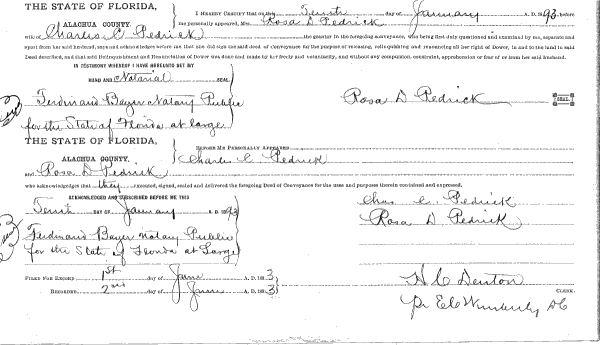 THE STATE OF FLORIDA,
ALACHUA COUNTY.
I HEREBY CERTIFY that on this Tenth day of January A. D. 1893, before
me personally appeared, Mrs. Rosa D. Pedrick
wife of Charles C. Pedrick the grantor in the foregoing conveyance, who being first duly questioned and examined by me, separate and
apart from her said husband, says and acknowledges before me that she did sign the said deed of Conveyance for the purpose of releasing, relinquishing and renouncing all her right of Dower, in and to the land in said
Deed described, and that said Relinquishment and Renunciation of Dower was done and made by her freely and voluntarily, and without any compulsion, constraint, apprehension or fear of or from her said husband.
IN TESTIMONY WHEREOF I HAVE HEREUNTO SET MY
HAND AND Notarial SEAL
Ferdinand Bayer Notary Public
for the State of Florida at large
Rosa D. Pedrick
SEAL
THE STATE OF FLORIDA,
ALACHUA COUNTY.
BEFORE ME PERSONALLY APPEARED
Charles C. Pedrick
and Rosa D Pedrick
who acknowledges that they executed, signed, sealed and delivered the foregoing Deed of Conveyance for the uses and purposes therein contained and expressed.
ACKNOWLEDGED AND SUBSCRIBED BEFORE ME THIS
Tenth DAY OF January A. D. 1893
Ferdinand Bayer Notary Public
for the State of Florida at Large
Chas C. Pedrick
Rosa D. Pedrick
FILED FOR RECORD 1st day of June A. D. 1883
RECORDED 2nd day of June A. D. 1883
H C Denton
CLERK.
pr E C Wimberly DC